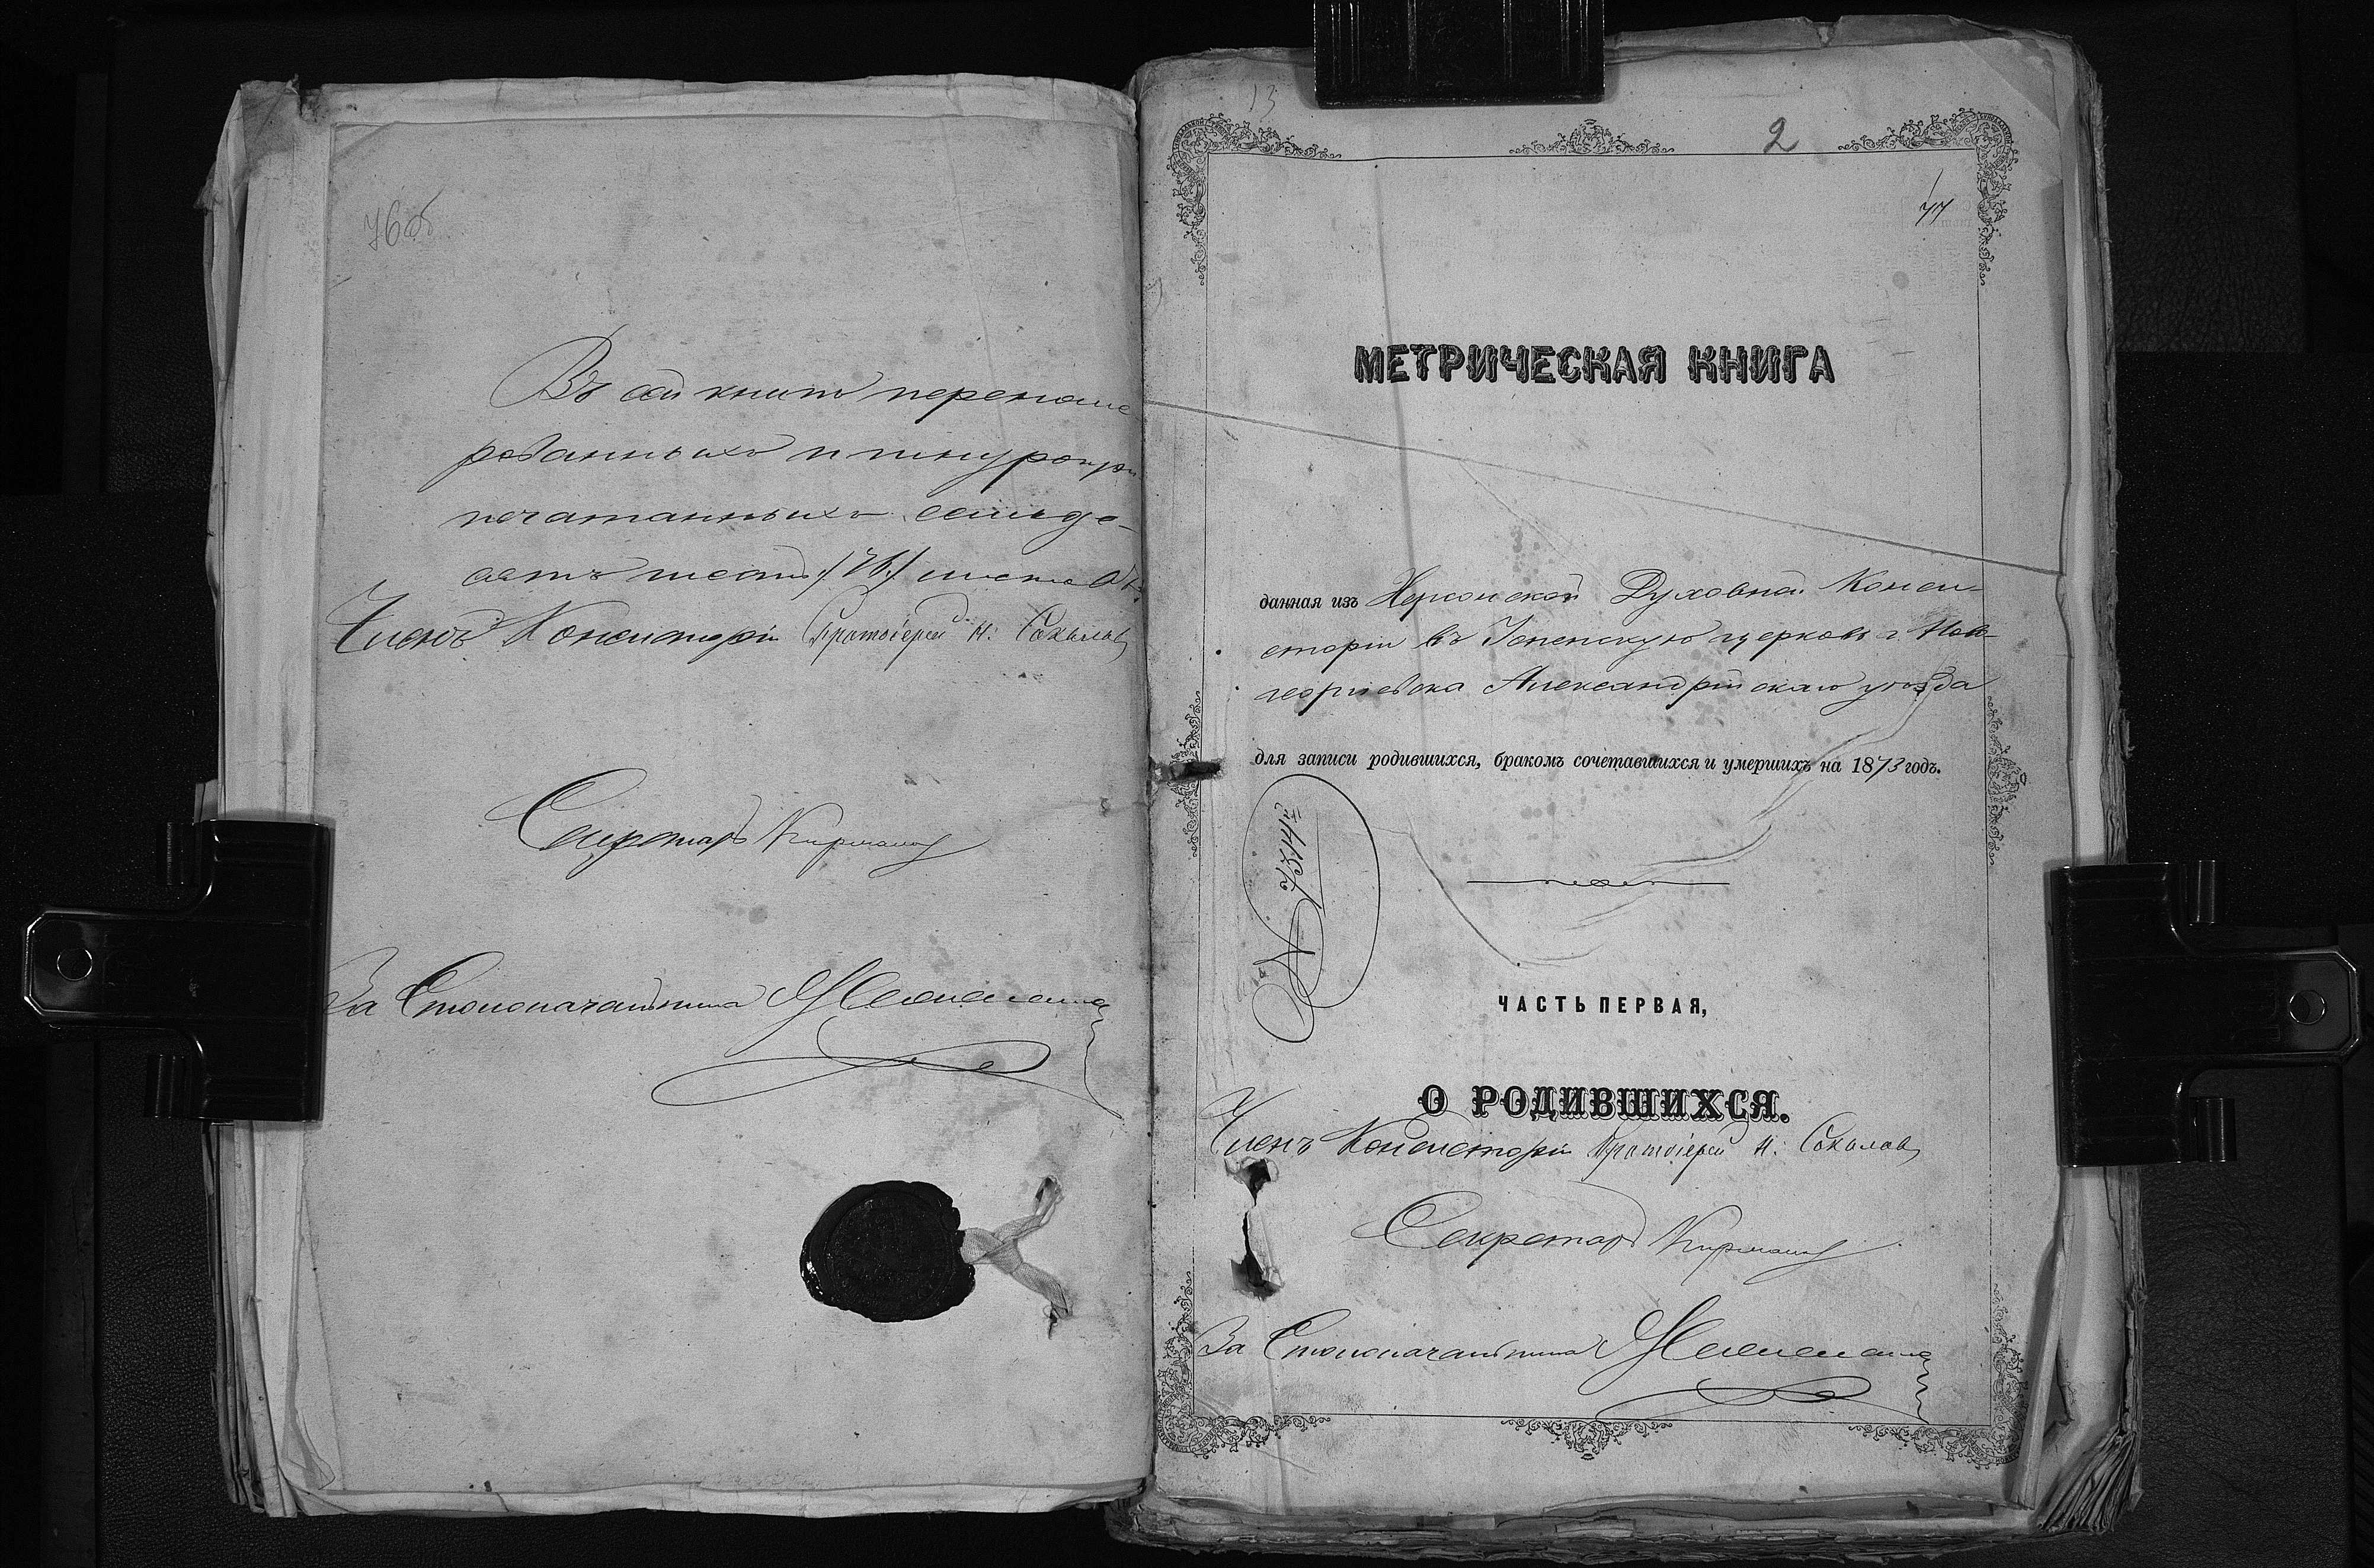 76 об
Въ сей книге перенуме
рованныхъ и шнуропри
печатанныхъ семьде-
сятъ шесть /76/ листовъ.
Членъ Консисторіи Протоіерей Н: Соколовъ
Секретарь
За Столоначальника
13
2
77
МЕТРИЧЕСКАЯ КНИГА
данная изъ Херсонской Духовной Конси-
сторіи въ Успенскую церковь г. Ново-
георгіевска Александрійскаго уѣзда
для записи родившихся, бракомъ сочетавшихся и умершихъ на 1873 годъ.
№ 7314
ЧАСТЬ ПЕРВАЯ,
О РОДИВШИХСЯ.
Членъ Консисторіи Протоіерей Н: Соколовъ
Секретарь
За Столоначальника